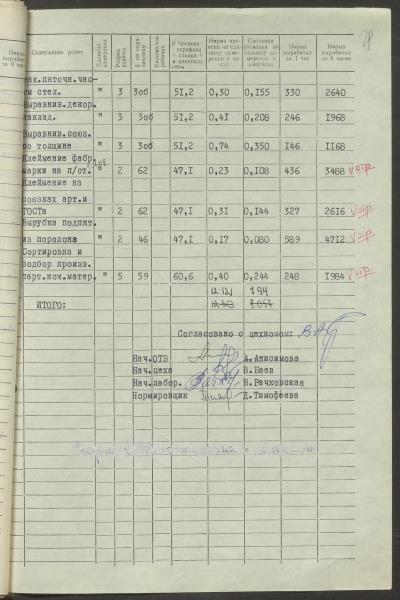 78
Содержание работ
Единица измерения
Разряд работы
§ по справочнику
Количество рабочих
Часовая тарифная ставка в копейках
Норма времени на единицу измерения в часах
Сдельная расценка на единицу измерения в копейках
Норма выработки за 1 час
Норма выработки за 8 часов
вни.пяточн.час-
ти стел. " 3 3об 51,2 0,30 0,155 330 2640
Выравнив.декор.
наклад. " 3 3об 51,2 0,41 0,208 246 1968
Выравнив.союз.
по толщине " 3 3об 51,2 0,74 0,350 146 1168
Клеймение фабр.
марки на п/ст. " 2 62 47,1 0,23 0,108 436 3488
Клеймение на
союзках арт.и
ГОСТа " 2 62 47,1 0,31 0,144 327 2616
Вырубка подпят.
из поролона " 2 46 47,1 0,17 0,080 589 4712
Сортировка и
подбор произв.
парт.кож.матер. " 5 59 60,6 0,40 0,244 248 1984
ИТОГО:
Согласовано с цехкомом:
Нач.ОТЗ А.Анисимова
Нач.цеха В.Баев
Нач.лабор. В.Рачковская
Нормировщик Д.Тимофеева